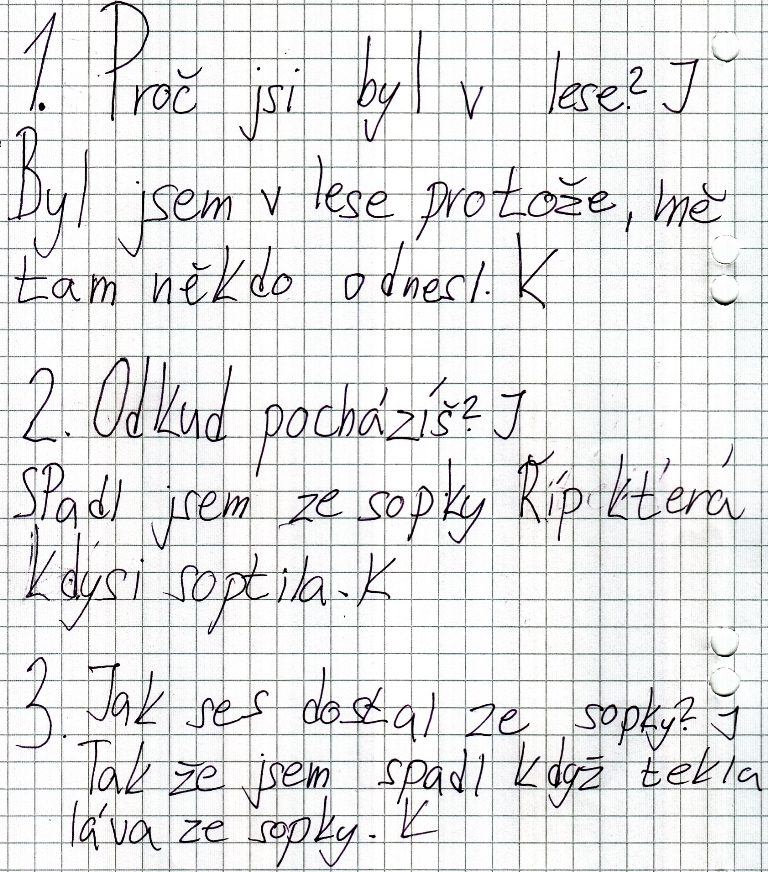 1. Proč jsi byl v lese? J
Byl jsem v lese protože, mě
tam někdo odnesl. K
2. Odkud pocházíš? J
SPadl jsem ze sopky Říp která
kdýsi soptila. K
3. Jak ses dostal ze sopky? J
Tak že jsem spadl když tekla
láva ze sopky. K